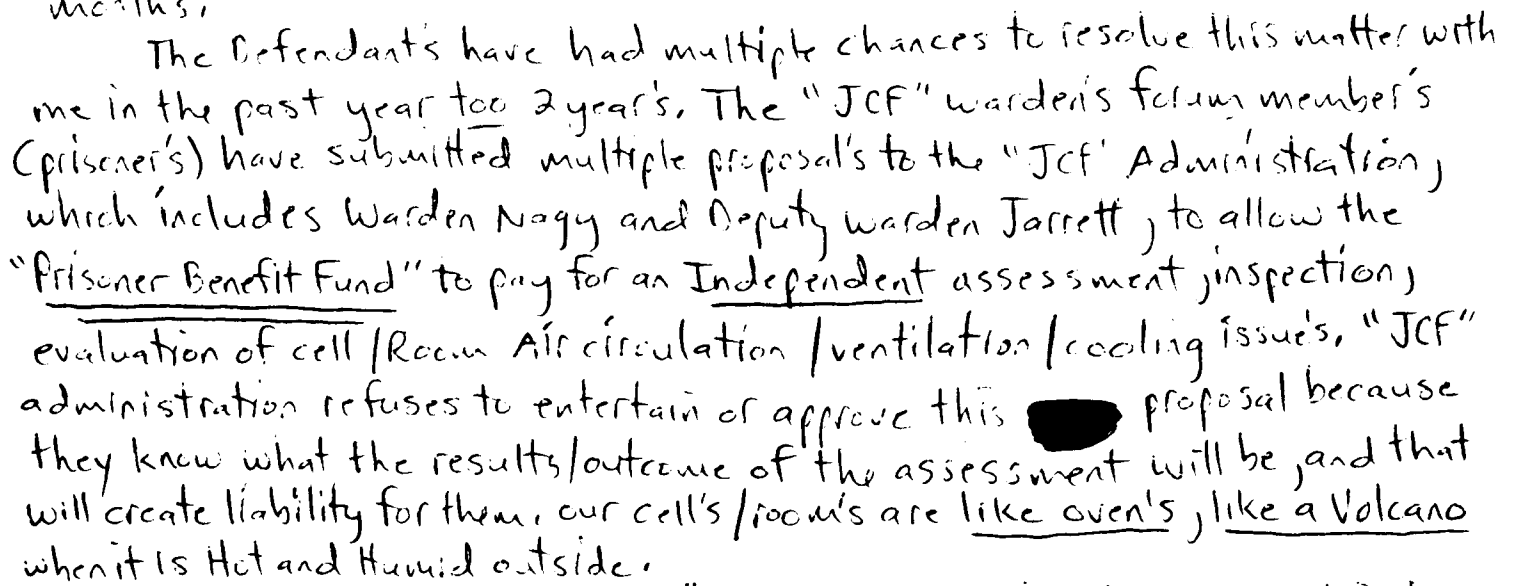 months,
The Defendant's have had multiple chances to resolve this matter with
me in the past year too 2 year's. The "JCF" warden's forum member's
(prisoner's) have submitted multiple proposal's to the "JCF' Administration,
which includes Warden Nagy and Deputy warden Jarrett, to allow the
"Prisoner Benefit Fund" to pay for an Independent assessment, inspection,
evaluation of cell/Room Air circulation/ventilation/cooling issue's. "JCF"
administration refuses to entertain or approve this proposal because
they know what the results/outcome of the assessment will be, and that
will create liability for them, our cell's/room's are like oven's, like a Volcano
when it Is Hot and Humid outside.